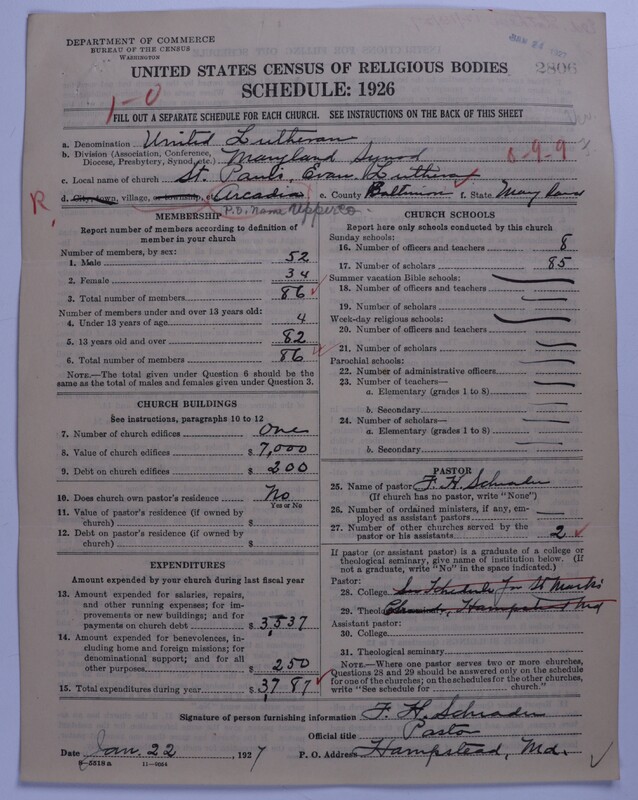 DEPARTMENT OF COMMERCE
BUREAU OF THE CENSUS
WASHINGTON
2806
UNITED STATES CENSUS OF RELIGIOUS BODIES
SCHEDULE: 1926
1-0
FILL OUT A SEPARATE SCHEDULE FOR EACH CHURCH. SEE INSTRUCTIONS ON THE BACK OF THIS SHEET
a. Denomination United Lutheran
b. Division (Association, Conference, Diocese, Presbytery, Synod, etc.) Maryland Synod
0-9-9
c. Local name of church St. Paul's, Evan. Lutheran
R,
d. City, town, village, or township, of Arcadia e. County Baltimore f. State Maryland
P.O. Name Upperco.
MEMBERSHIP
Report number of members according to definition of member in your church
Number of members, by sex:
1. Male 52
2. Female 34
3. Total number of members 86
Number of members under and over 13 years old:
4. Under 13 years of age 4
5. 13 years old and over 82
6. Total number of members 86
NOTE.—The total given under Question 6 should be the same as the total of males and females given under Question 3.
CHURCH BUILDINGS
See instructions, paragraphs 10 to 12
7. Number of church edifices One
8. Value of church edifices $ 7,000
9. Debt on church edifices $ 200
10. Does church own pastor's residence No
Yes or No
11. Value of pastor's residence (if owned by church) $
12. Debt on pastor's residence (if owned by church) $
EXPENDITURES
Amount expended by your church during last fiscal year
13. Amount expended for salaries, repairs, and other running expenses; for improvements or new buildings; and for payments on church debt $ 3,537
14. Amount expended for benevolences, including home and foreign missions; for denominational support; and for all other purposes $ 250
15. Total expenditures during year $ 3,787
CHURCH SCHOOLS
Report here only schools conducted by this church
Sunday schools:
16. Number of officers and teachers 8
17. Number of scholars 85
Summer vacation Bible schools:
18. Number of officers and teachers
19. Number of scholars
Week-day religious schools:
20. Number of officers and teachers
21. Number of scholars
Parochial schools:
22. Number of administrative officers
23. Number of teachers—
a. Elementary (grades 1 to 8)
b. Secondary
24. Number of scholars—
a. Elementary (grades 1 to 8)
b. Secondary
PASTOR
25. Name of pastor F. H. Schrader
(If church has no pastor, write "None")
26. Number of ordained ministers, if any, employed as assistant pastors
27. Number of other churches served by the pastor or his assistants 2
If pastor (or assistant pastor) is a graduate of a college or theological seminary, give name of institution below. (If not a graduate, write "No" in the space indicated.)
Pastor:
28. College See Schedule for St Mark's
29. Theological Hampstead Md
Assistant pastor:
30. College
31. Theological seminary
NOTE.—Where one pastor serves two or more churches, Questions 28 and 29 should be answered only on the schedule for one of the churches; on the schedules for the other churches, write "See schedule for church."
Signature of person furnishing information F. H. Schrader
Official title Pastor
Date Jan. 22, 1927 P. O. Address Hampstead, Md.
8-5518a 11-9024